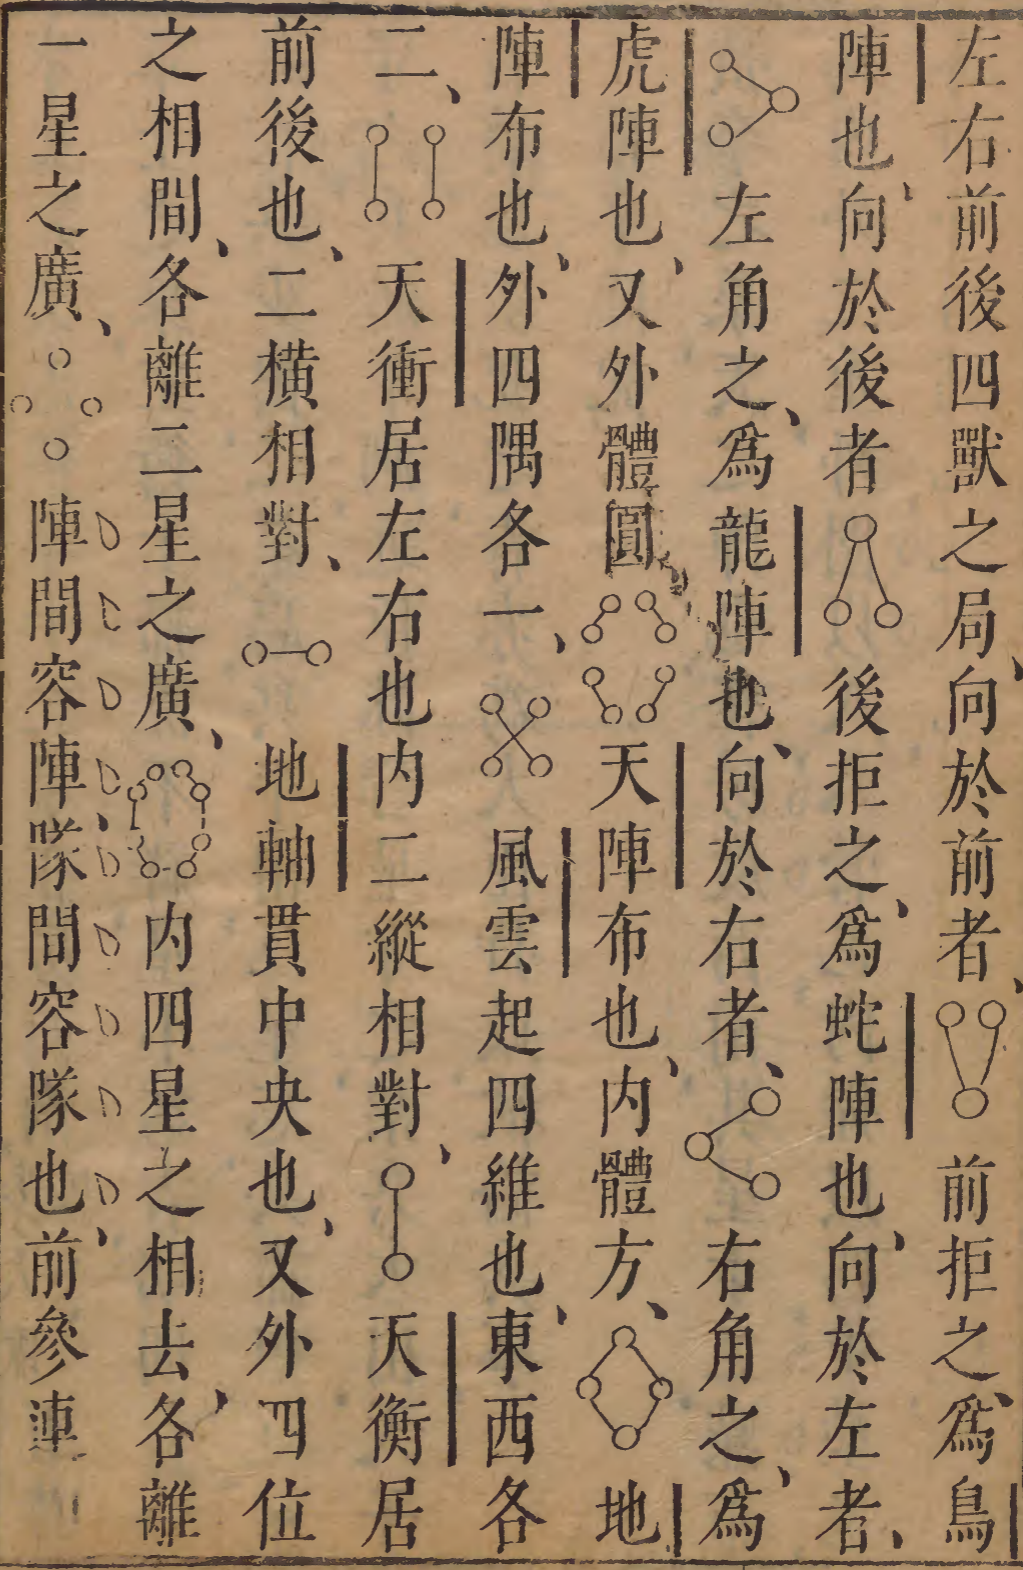 左右前後四獸之局、向於前者、前拒之、爲鳥
陣也、向於後者後拒之、爲蛇陣也、向於左者、
左角之、爲龍陣也、向於右者、右角之、爲
虎陣也、又外體圓天陣布也、内體方、地
陣布也、外四隅各一、風雲起四維也、東西各
二、天衝居左右也内二縱相對、天衡居
前後也、二横相對、地軸貫中央也、又外四位
之相間、各離二星之廣、内四星之相去、各離
一星之廣、陣間容陣、隊間容隊也、前參連